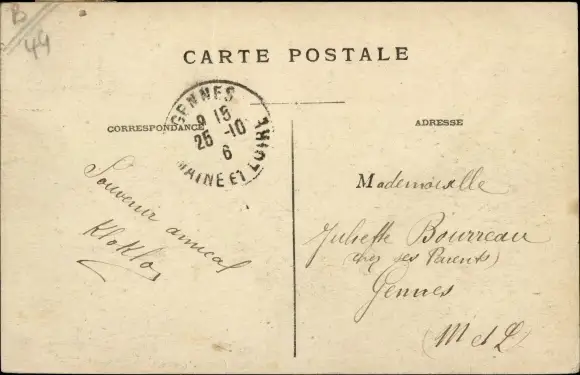 B
49
CARTE POSTALE
CORRESPONDANCE
ADRESSE
GENNES
9 15
25 -10
6
MAINE ET LOIRE
Souvenir amical
Kloklo
Mademoiselle
Juliette Bourreau
chez ses Parents)
Gennes
(M et L)